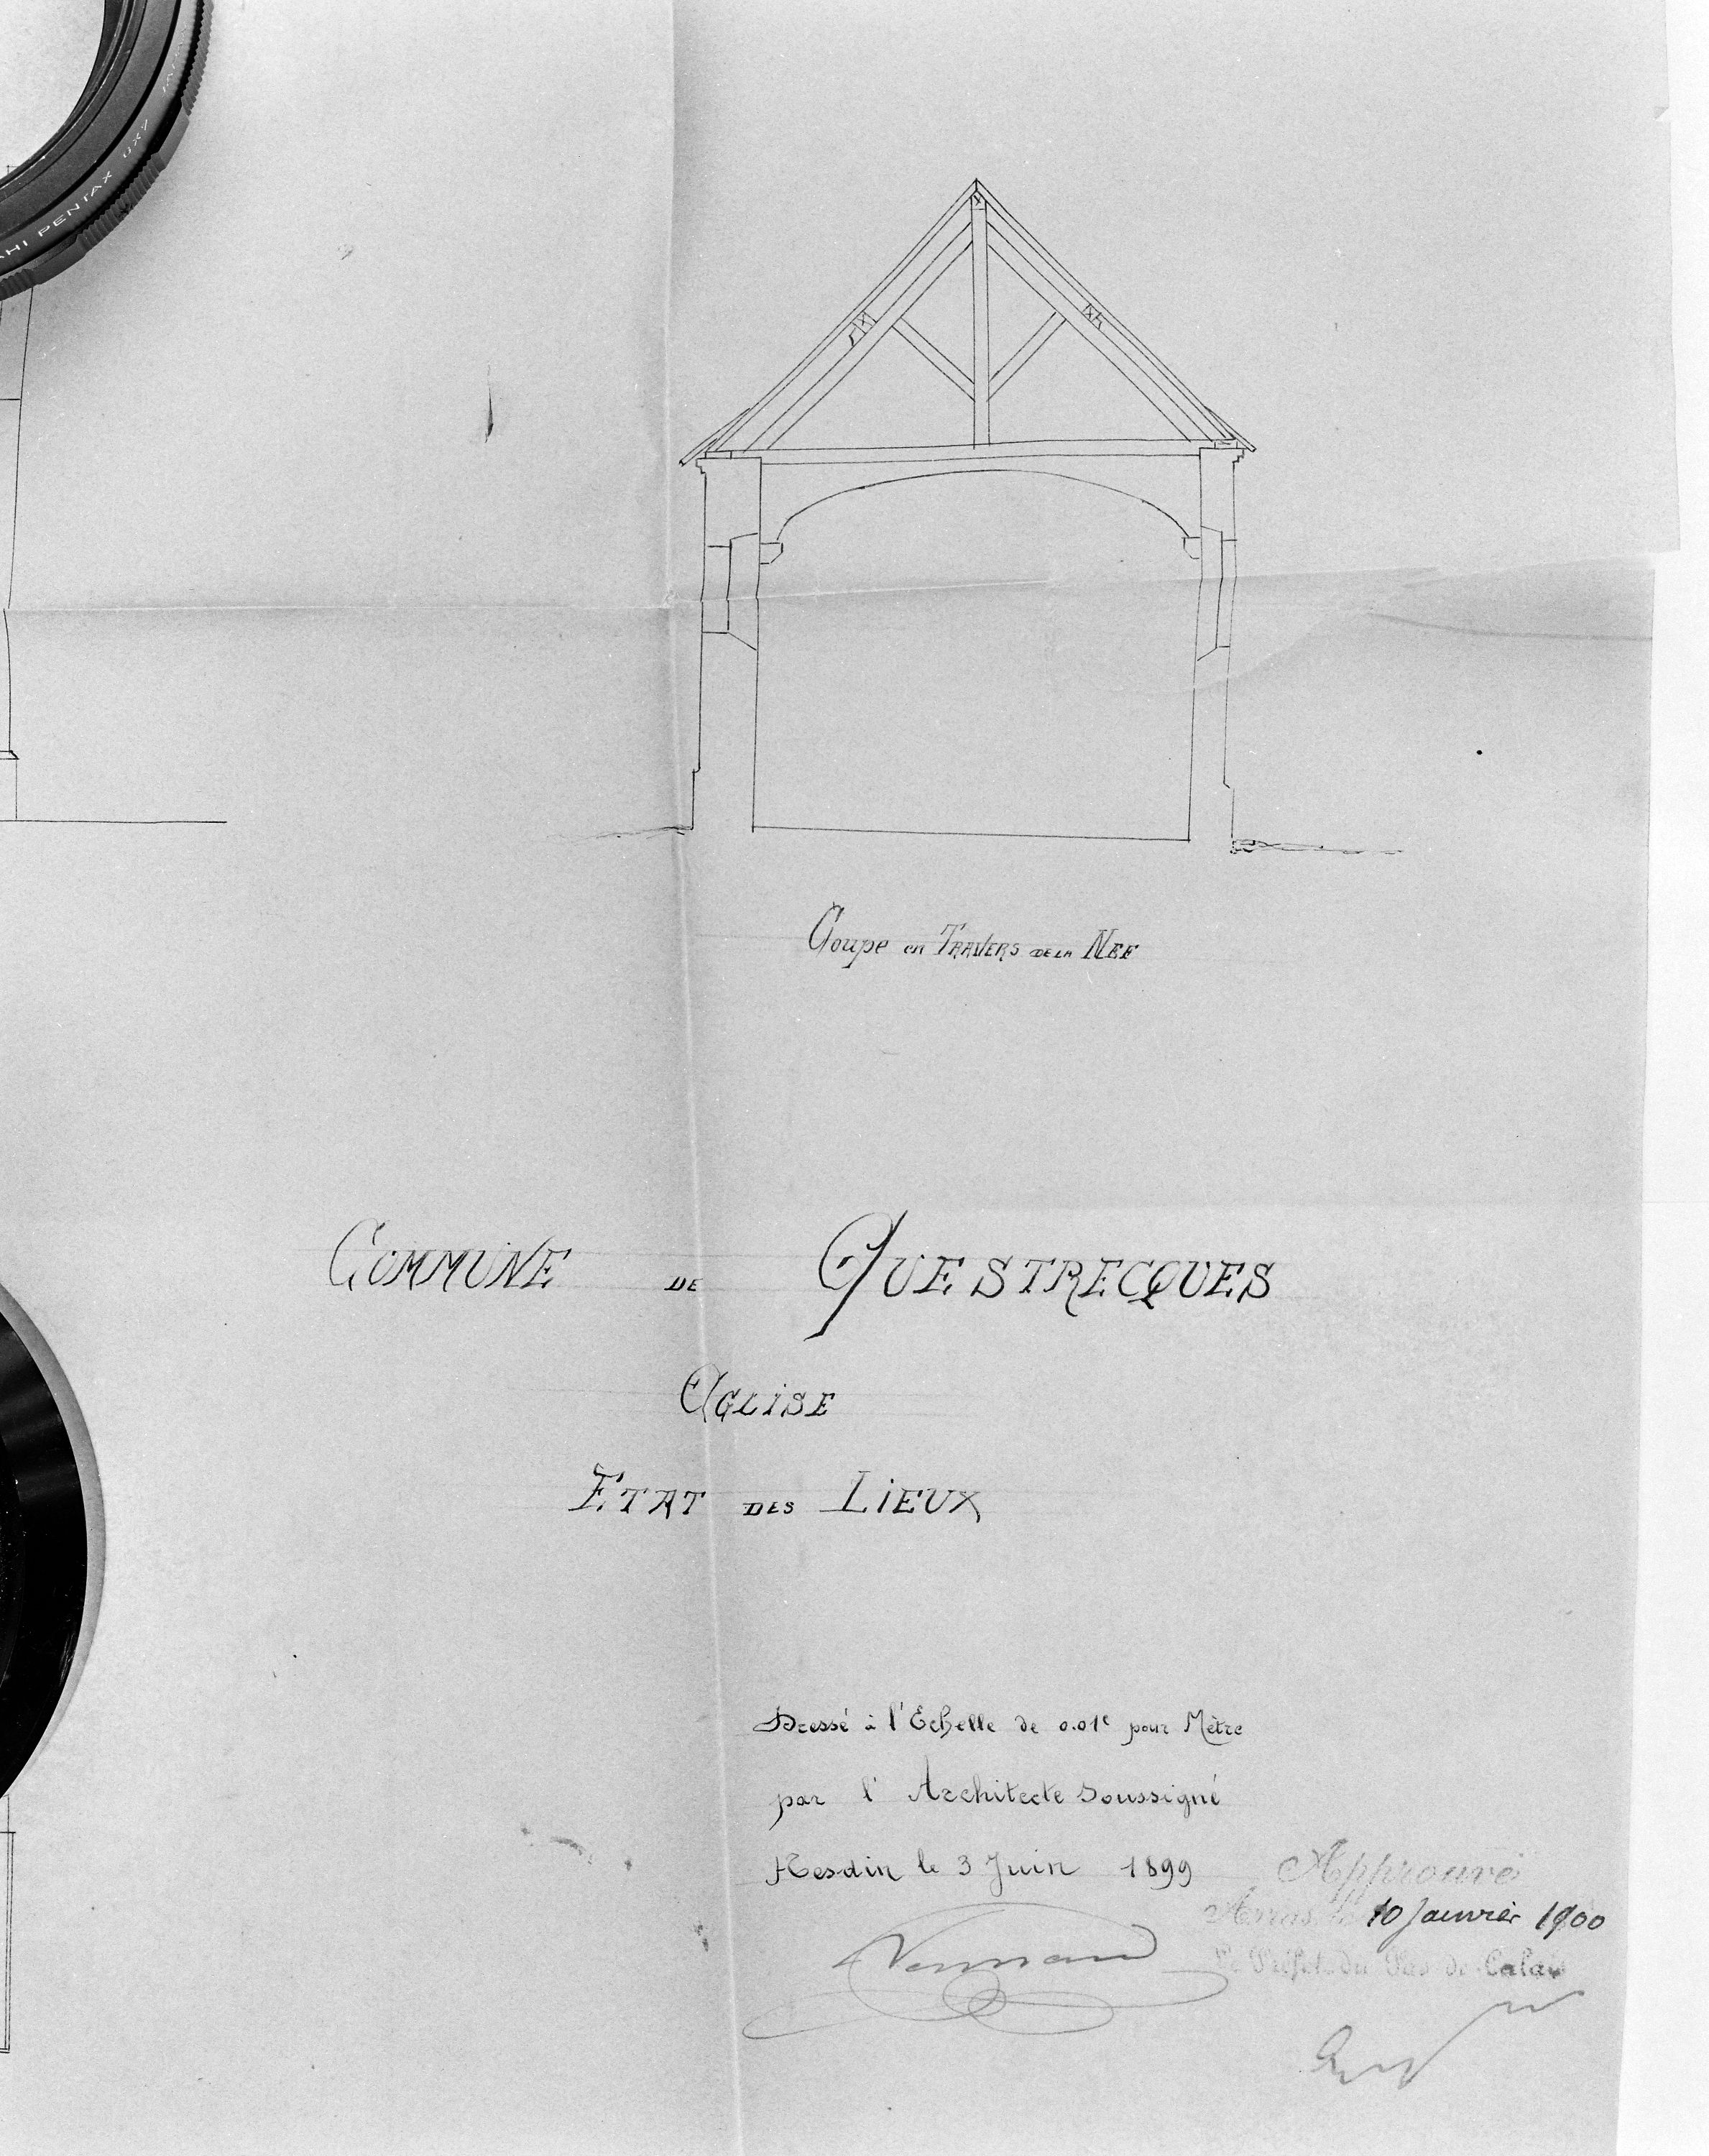 AHI PENTAX 6X7
Coupe en TRAVERS DE LA NEF
COMMUNE DE QUESTRECQUES
EGLISE
ETAT DES LIEUX
Dressé à l'Echelle de 0.01c pour Mètre
par l'Architecte Soussigné
Hesdin le 3 Juin 1899
Approuvé
Arras le 10 Janvier 1900
Le Préfet du Pas de Calais